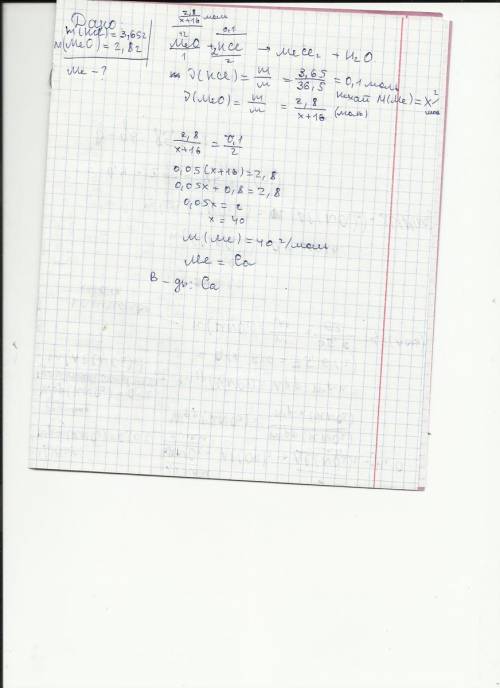 Дано:
m(HCl) = 3,65г
m(MeO) = 2,8г
Me - ?
2,8/x+16 моль 0,1
MeO + 2HCl → MeCl₂ + H₂O
1 2
ν(HCl) = m/m = 3,65/36,5 = 0,1 моль
нехай M(Me) = x г/моль
ν(MeO) = m/m = 2,8/x+16 (моль)
2,8/x+16 = 0,1/2
0,05(x+16) = 2,8
0,05x + 0,8 = 2,8
0,05x = 2
x = 40
M(Me) = 40 г/моль
Me = Ca
В-дь: Ca